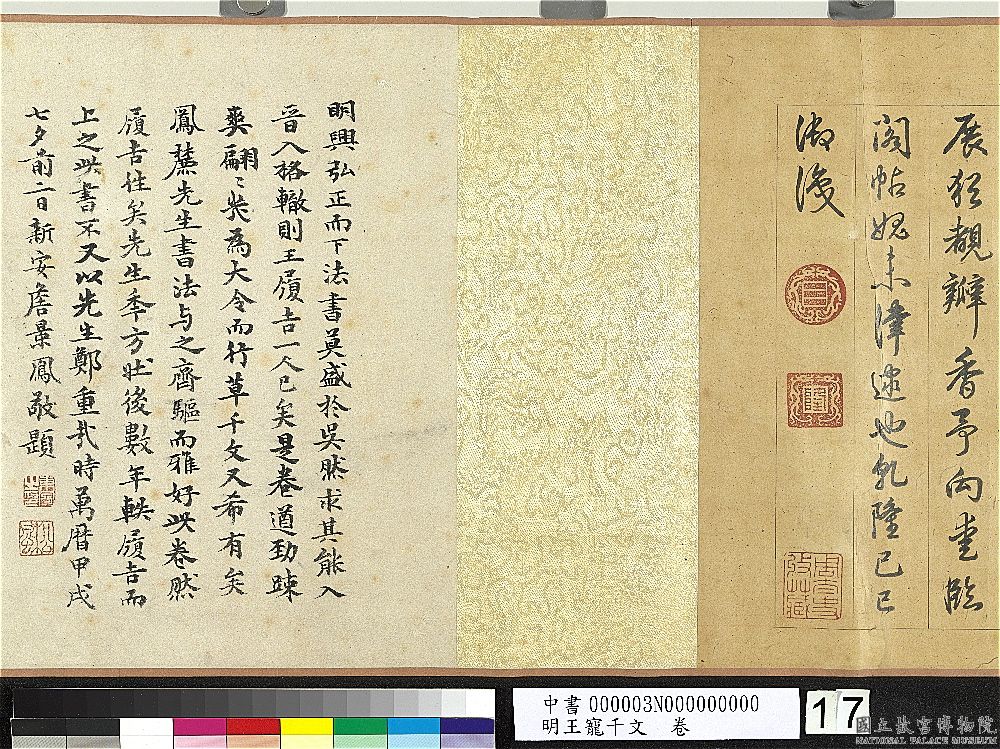 展效觀瓣香予向臺臨
閣帖媿未津逮也乾隆己巳
御識
明興弘正而下法書莫盛於吳然求其能入
晉人格轍則王履吉一人已矣是卷遒勁疎
爽翩〻哉為大令而行草千文又希有矣
鳳麓先生書法与之齊驅而雅好此卷然
履吉往矣先生季方壯後數年軼履吉而
上之此書不又以先生鄭重哉時萬曆甲戌
七夕前二日新安詹景鳳敬題
中書 000003N000000000
明王寵千文 卷
17
國立故宮博物院
NATIONAL PALACE MUSEUM